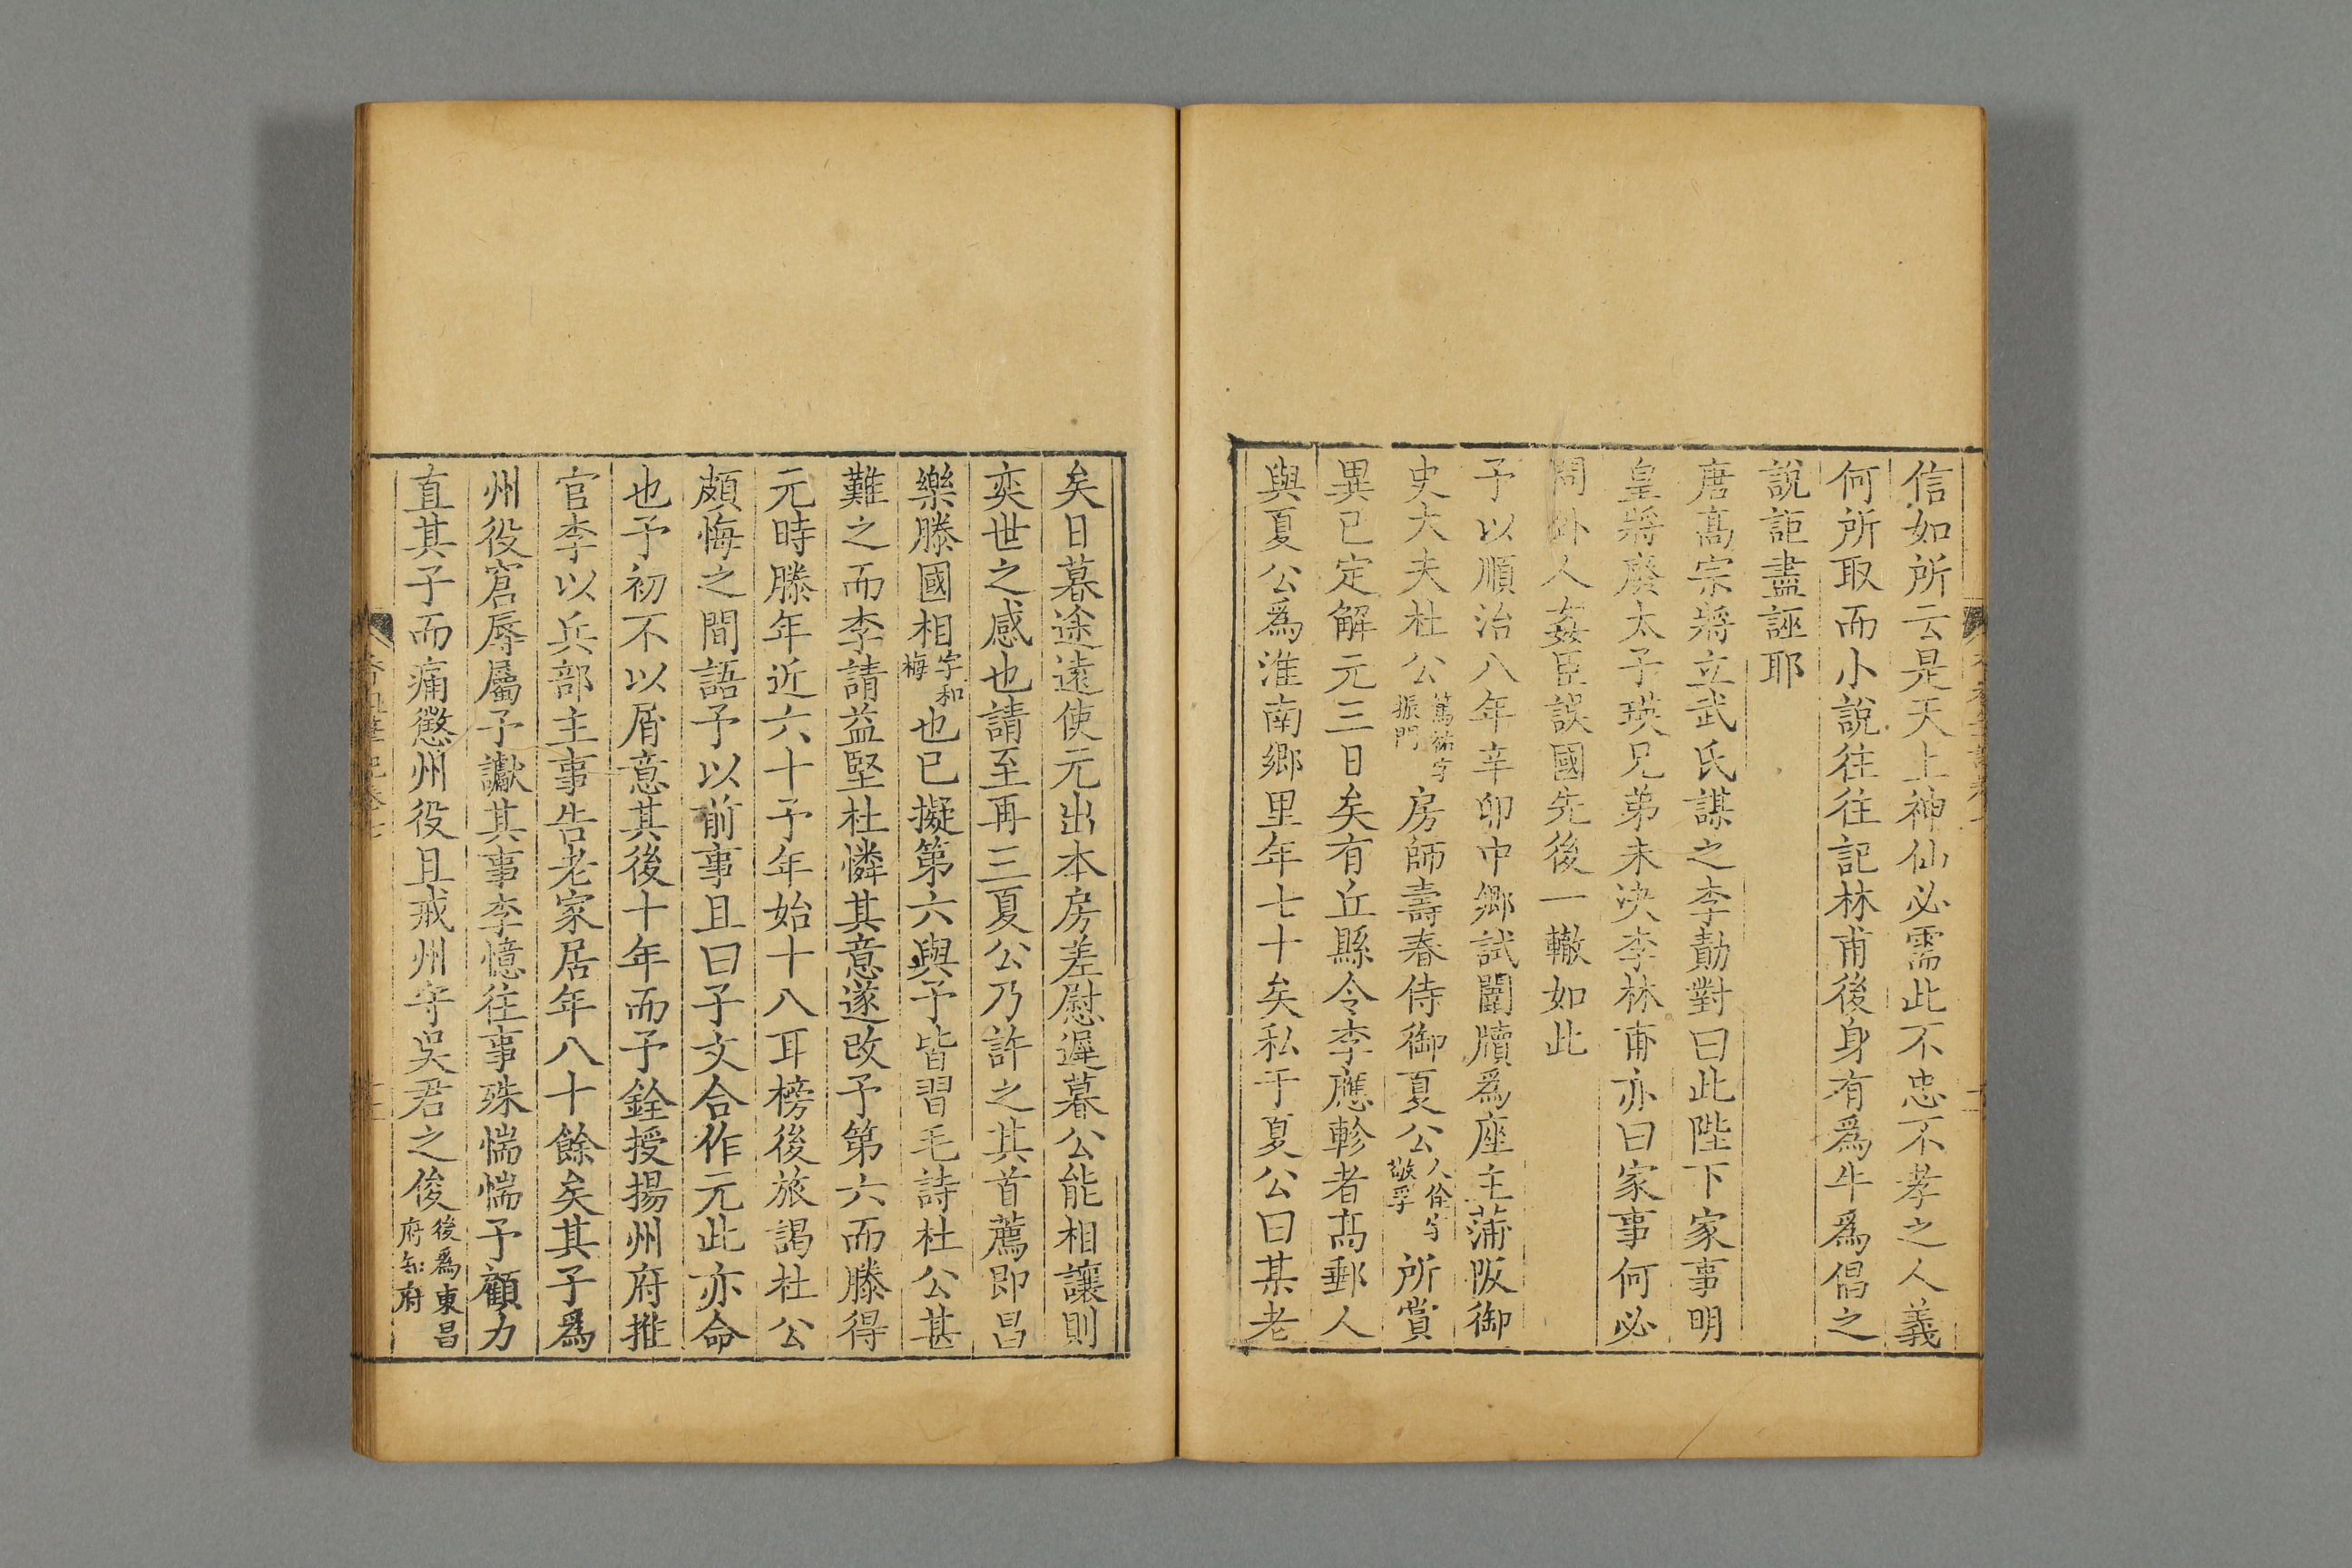 信如所云是天上神仙必需此不忠不孝之人義
何所取而小說往往記林甫後身有爲牛爲倡之
說詎盡誣耶
唐高宗將立武氏謀之李勣對曰此陛下家事明
皇將廢太子瑛兄弟未決李林甫亦曰家事何必
問外人姦臣誤國先後一轍如此
予以順治八年辛卯中鄉試闈牘爲座主蒲阪御
史大夫杜公篤祐字振門房師壽春侍御夏公人佺字敬孚所賞
異已定解元三日矣有丘縣令李應軫者高郵人
與夏公爲淮南鄉里年七十矣私于夏公曰某老
矣日暮途遠使元出本房差慰遲暮公能相讓則
奕世之感也請至再三夏公乃許之其首薦即昌
樂滕國相字和梅也已擬第六與予皆習毛詩杜公甚
難之而李請益堅杜憐其意遂改予第六而滕得
元時滕年近六十予年始十八耳榜後旅謁杜公
頗悔之間語予以前事且曰子文合作元此亦命
也予初不以屑意其後十年而予銓授揚州府推
官李以兵部主事告老家居年八十餘矣其子爲
州役窘辱屬予讞其事李憶往事殊惴惴予顧力
直其子而痛懲州役且戒州守吳君之俊後爲東昌府知府